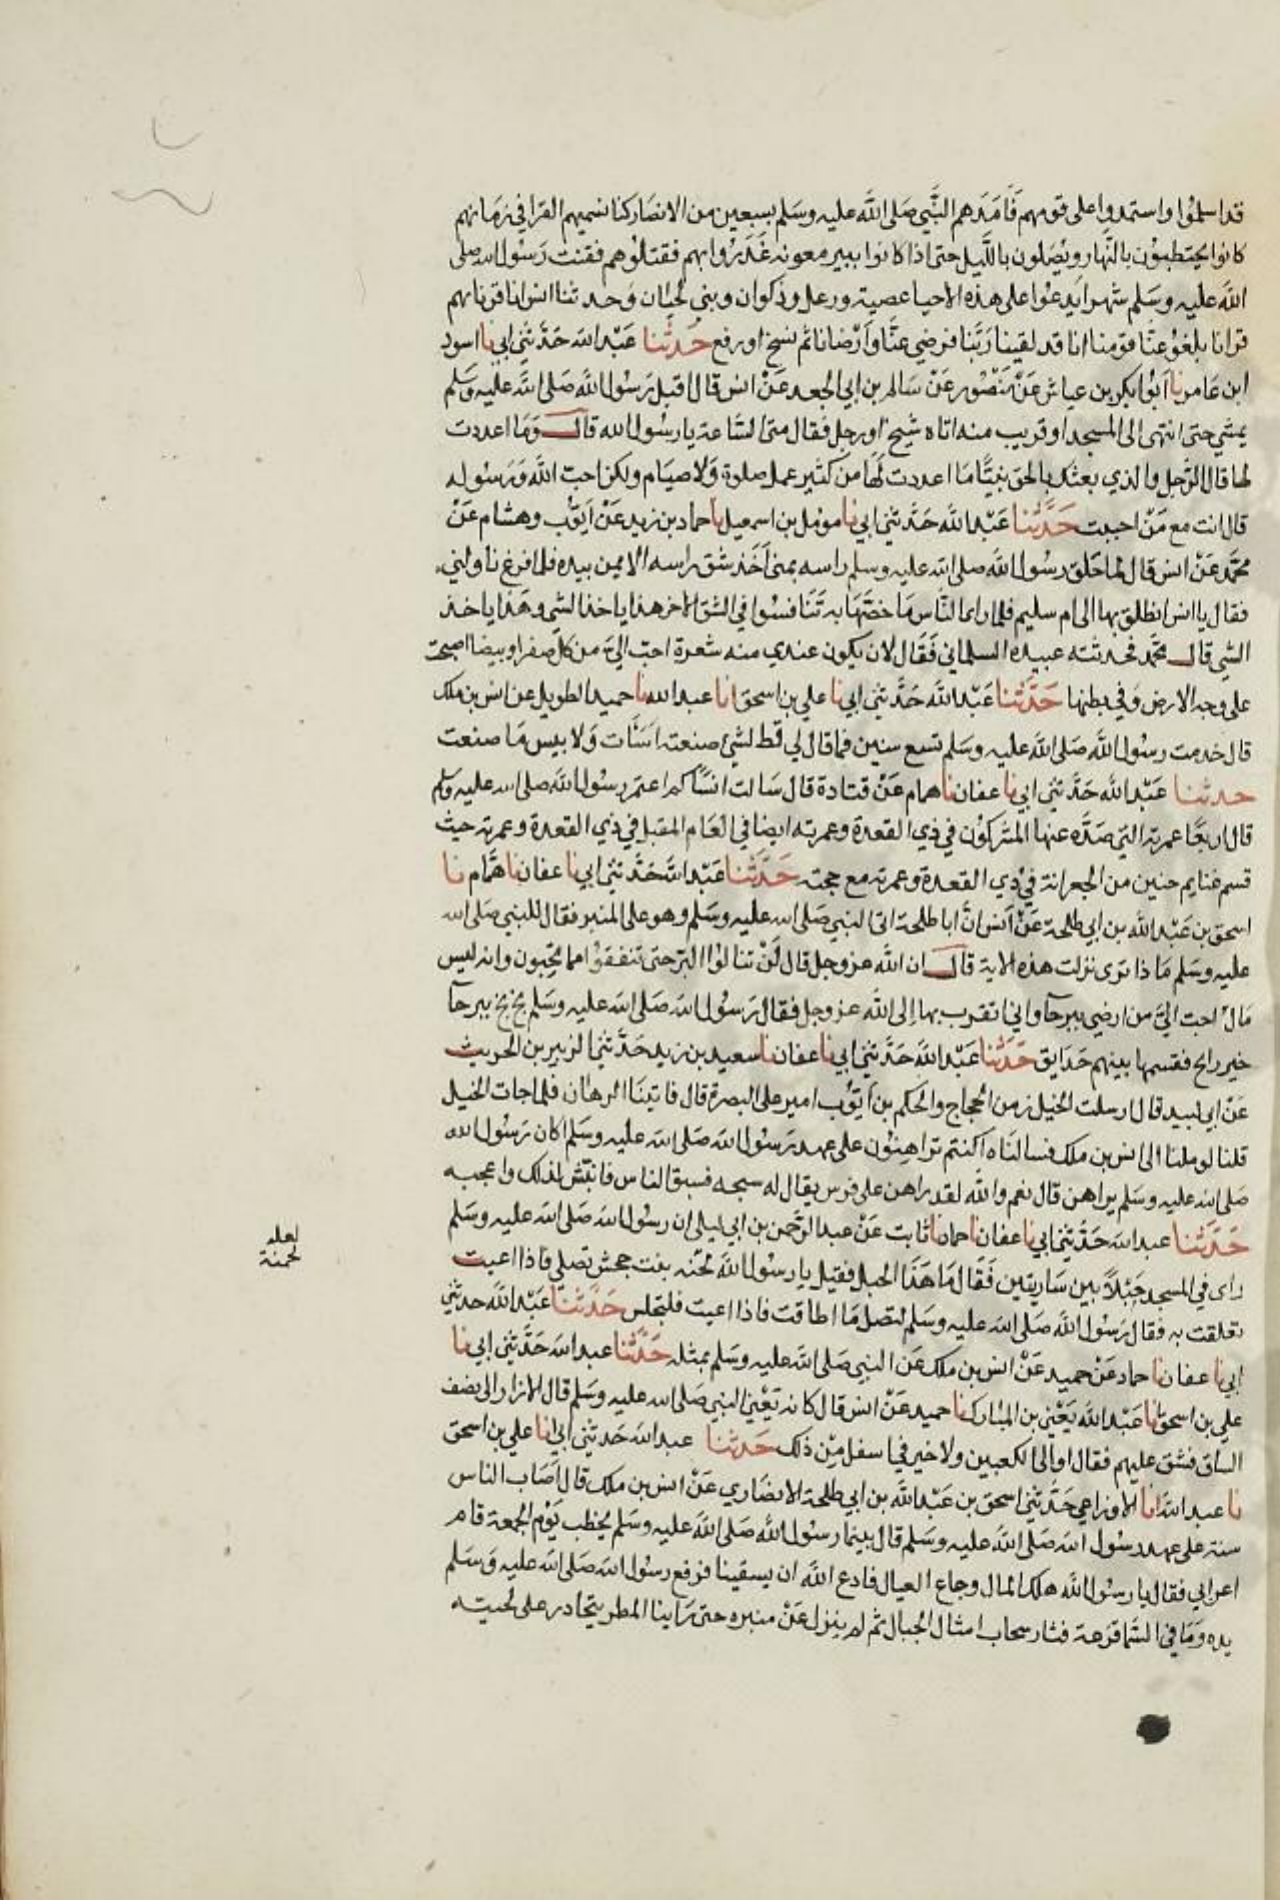 قد اسلموا واستمدوا على قومهم فامدهم النبي صلى الله عليه وسلم بسبعين من الانصار كنا نسميهم القرا في زمانهم
كانوا يحتطبون بالنهار ويصلون بالليل حتى اذا كانوا ببير معونه غدروا بهم فقتلوهم فقنت رسول الله صلى
الله عليه وسلم شهرا يدعوا على هذه الاحيا عصية ورعل وذكوان وبني لحيان وحدثنا انس انا قرنا بهم
قرانا بلغو عنا قومنا انا قد لقينا ربنا فرضي عنا وارضانا ثم نسخ او رفع حدثنا عبد الله حدثني ابي نا اسود
ابن عامر نا ابوا بكر بن عياش عن منصور عن سالم بن ابي الجعد عن انس قال اقبل رسول الله صلى الله عليه وسلم
يمشي حتى انتهى الى المسجد او قريب منه اتاه شيخ او رجل فقال متى الساعة يا رسول الله قال وما اعددت
لها قال الرجل والذي بعثك بالحق نبيا ما اعددت لها من كثير عمل صلوة ولا صيام ولكن احب الله ورسوله
قال انت مع من احببت حدثنا عبد الله حدثني ابي نا مومل بن اسمعيل نا حماد بن زيد عن ايوب وهشام عن
محمد عن انس قال لما حلق رسول الله صلى الله عليه وسلم راسه بمنى اخذ شق راسه الايمن بيده فلما فرغ ناولني
فقال يا انس انطلق بها الى ام سليم فلما راى الناس ما خصها به تنافسوا في الشق الاخر هذا ياخذ الشي وهذا ياخذ
الشي قال محمد فحدثته عبيده السلماني فقال لان يكون عندي منه شعرة احب الي من كل صفرا وبيضا اصبحت
على وجه الارض وفي بطنها حدثنا عبد الله حدثني ابي نا علي بن اسحق انا عبد الله نا حميد الطويل عن انس بن ملك
قال خدمت رسول الله صلى الله عليه وسلم تسع سنين فما قال لي قط لشي صنعته اسات ولا بيس ما صنعت
حدثنا عبد الله حدثني ابي نا عفان نا همام عن قتادة قال سالت انسا كم اعتمر رسول الله صلى الله عليه وسلم
قال اربعا عمرته التي صده عنها المشركون في ذي القعدة وعمرته ايضا في العام المقبل في ذي القعدة وعمرته حيث
قسم غنايم حنين من الجعرانة في ذي القعدة وعمرته مع حجته حدثنا عبد الله حدثني ابي نا عفان نا همام نا
اسحق بن عبد الله بن ابي طلحة عن انس ان ابا طلحة اتى النبي صلى الله عليه وسلم وهو على المنبر فقال للنبي صلى الله
عليه وسلم ما ذا ترى نزلت هذه الاية قال ان الله عز وجل قال لن تنالوا البر حتى تنفقوا مما تحبون وانه ليس
مال احب الي من ارضي بيرحا واني اتقرب بها الى الله عز وجل فقال رسول الله صلى الله عليه وسلم بخ بخ بيرحا
خير رايح فقسمها بينهم حدايق حدثنا عبد الله حدثني ابي نا عفان نا سعيد بن زيد حدثني الزبير بن الحريث
عن ابي لبيد قال ارسلت الخيل زمن الحجاج والحكم بن ايوب امير على البصرة قال فاتينا الرهان فلما جات الخيل
قلنا لو ملنا الى انس بن ملك فسالناه اكنتم تراهنون على عهد رسول الله صلى الله عليه وسلم اكان رسول الله
صلى الله عليه وسلم يراهن قال نعم والله لقد راهن على فرس يقال له سبحه فسبق الناس فانتش لذلك واعجبه
حدثنا عبد الله حدثني ابي نا عفان نا حماد نا ثابت عن عبد الرحمن بن ابي ليلى ان رسول الله صلى الله عليه وسلم
راى في المسجد حبلا بين ساريتين فقال ما هذا الحبل فقيل يا رسول الله لحمنه بنت جحش تصلي فاذا اعيت
تعلقت به فقال رسول الله صلى الله عليه وسلم لتصل ما اطاقت فاذا اعيت فلتجلس حدثنا عبد الله حدثني
ابي نا عفان نا حماد عن حميد عن انس بن ملك عن النبي صلى الله عليه وسلم بمثله حدثنا عبد الله حدثني ابي نا
علي بن اسحق انا عبد الله يعني بن المبارك نا حميد عن انس قال كانه يعني النبي صلى الله عليه وسلم قال الازار الى نصف
الساق فشق عليهم فقال او الى الكعبين ولا خير في اسفل من ذلك حدثنا عبد الله حدثني ابي نا علي بن اسحق
نا عبد الله انا الاوزاعي حدثني اسحق بن عبد الله بن ابي طلحة الانصاري عن انس بن ملك قال اصاب الناس
سنة على عهد رسول الله صلى الله عليه وسلم قال بينما رسول الله صلى الله عليه وسلم يخطب يوم الجمعة قام
اعرابي فقال يا رسول الله هلك المال وجاع العيال فادع الله ان يسقينا فرفع رسول الله صلى الله عليه وسلم
يده وما في السما قزعة فثار سحاب امثال الجبال ثم لم ينزل عن منبره حتى راينا المطر يتحادر على لحيته
لعله
لحمنة